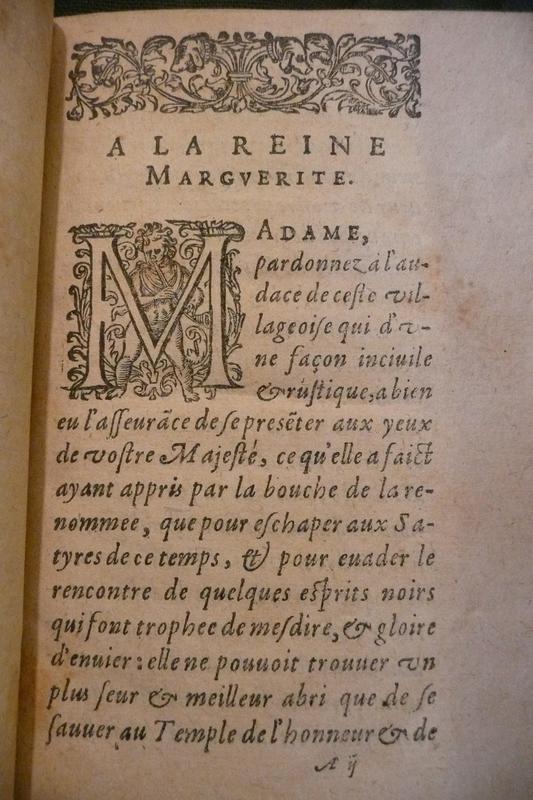 A LA REINE
MARGVERITE.
MADAME,
pardonnez à l'au-
dace de ceste vil-
lageoise qui d'v-
ne façon inciuile
& rustique, a bien
eu l'asseurãce de se presẽter aux yeux
de vostre Majesté, ce qu'elle a faict
ayant appris par la bouche de la re-
nommee, que pour eschaper aux Sa-
tyres de ce temps, & pour euader le
rencontre de quelques esprits noirs
qui font trophee de mesdire, & gloire
d'enuier : elle ne pouuoit trouuer vn
plus seur & meilleur abri que de se
sauuer au Temple de l'honneur & de
A ij